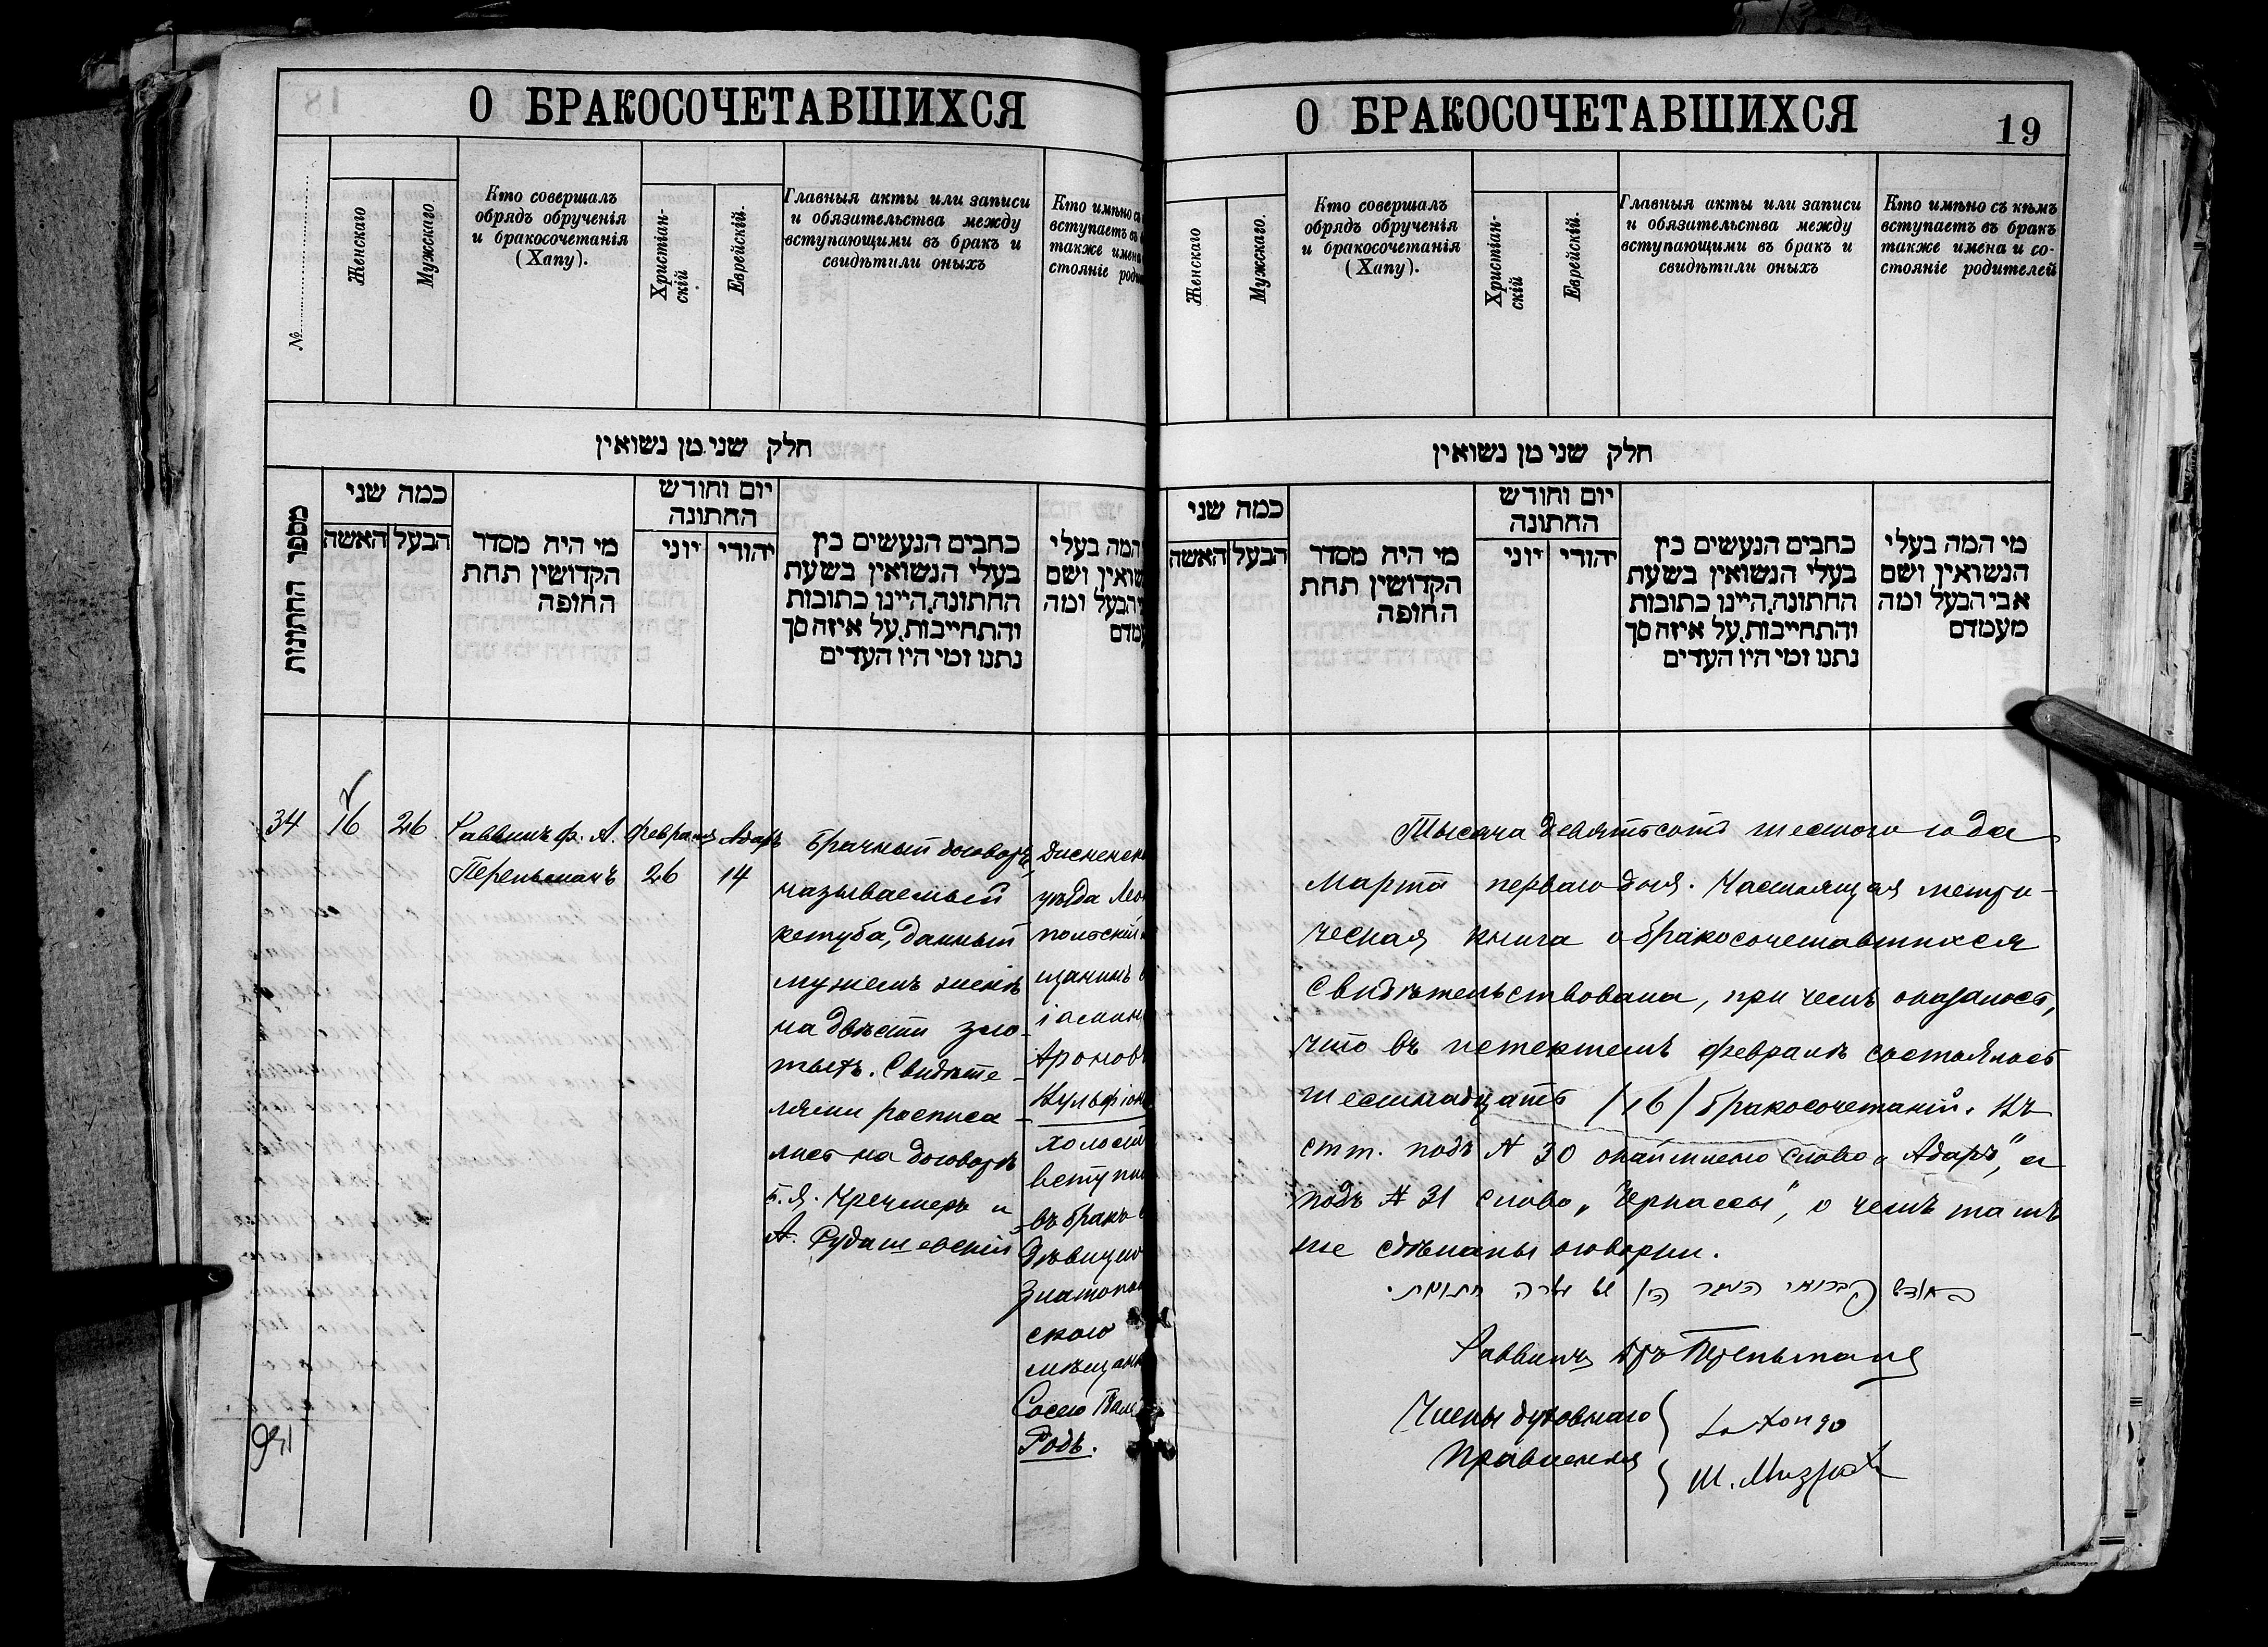 О БРАКОСОЧЕТАВШИХСЯ
№
Женскаго
Мужскаго
Кто совершалъ
обрядъ обрученія
и бракосочетанія
(Хапу).
Христіан-
скій
Еврейскій.
Главныя акты или записи
и обязательства между
вступающими въ бракъ и
свидѣтили оныхъ
Кто имѣно съ
вступаетъ въ
также имена
стояніе роди
חלק שני מן נשואין
מספר החתונות
כמה שני
האשה
הבעל
מי היה מסדר
הקדושין תחת
החופה
יום וחודש
החתונה
יוני
יהודי
כתבים הנעשים בין
בעלי הנשואין בשעת
החתונה, היינו כתובות
והתחייבות, על איזה סך
נתנו ומי היו העדים
המה בעלי
שואין ושם
הבעל ומה
מדם
34
16
26
Раввинъ ф. А.
Перельманъ
Февраля
26
Адаръ
14
Брачный договоръ,
называемый
кетуба, данный
мужемъ женѣ
на двѣсти зло-
тыхъ. Свидѣте-
лями росписа-
лись на договорѣ
Г. Я. Кречмеръ и
А. Рудашевскій
Дисненск
уѣзда Лео
польскій
щанинъ
іаминъ
Ароновъ
Кульфіон
холосты
вступил
въ бракъ
дѣвицею
Златопол
скою
мѣщанк
Сосею
Родъ.
О БРАКОСОЧЕТАВШИХСЯ
19
Женскаго
Мужскаго.
Кто совершалъ
обрядъ обрученія
и бракосочетанія
(Хапу).
Христіан-
скій
Еврейскій.
Главныя акты или записи
и обязательства между
вступающими въ бракъ и
свидѣтили оныхъ
Кто имѣно съ кѣмъ
вступаетъ въ бракъ
также имена и со-
стояніе родителей
חלק שני מן נשואין
כמה שני
האשה
הבעל
מי היה מסדר
הקדושין תחת
החופה
יום וחודש
החתונה
יוני
יהודי
כתבים הנעשים בין
בעלי הנשואין בשעת
החתונה, היינו כתובות
והתחייבות, על איזה סך
נתנו ומי היו העדים
מי המה בעלי
הנשואין ושם
אבי הבעל ומה
מעמדם
Тысяча девятьсотъ шестого года
Марта перваго дня. Настоящая метри-
ческая книга о бракосочетавшихся
свидѣтельствована, при чемъ оказалось,
что въ истекшемъ февралѣ состоялось
шестнадцать /16/ бракосочетаній. Въ
ст. подъ № 30 окаймлено слово „Адаръ", а
подъ № 31 слово „Черкассы", о чемъ тамъ
же сдѣланы оговорки.
בחודש פברואר העבר היו שש עשרה חתונות.
Раввинъ Дръ Перельманъ
Члены духовнаго
Правленія
Ш. Мизрахъ